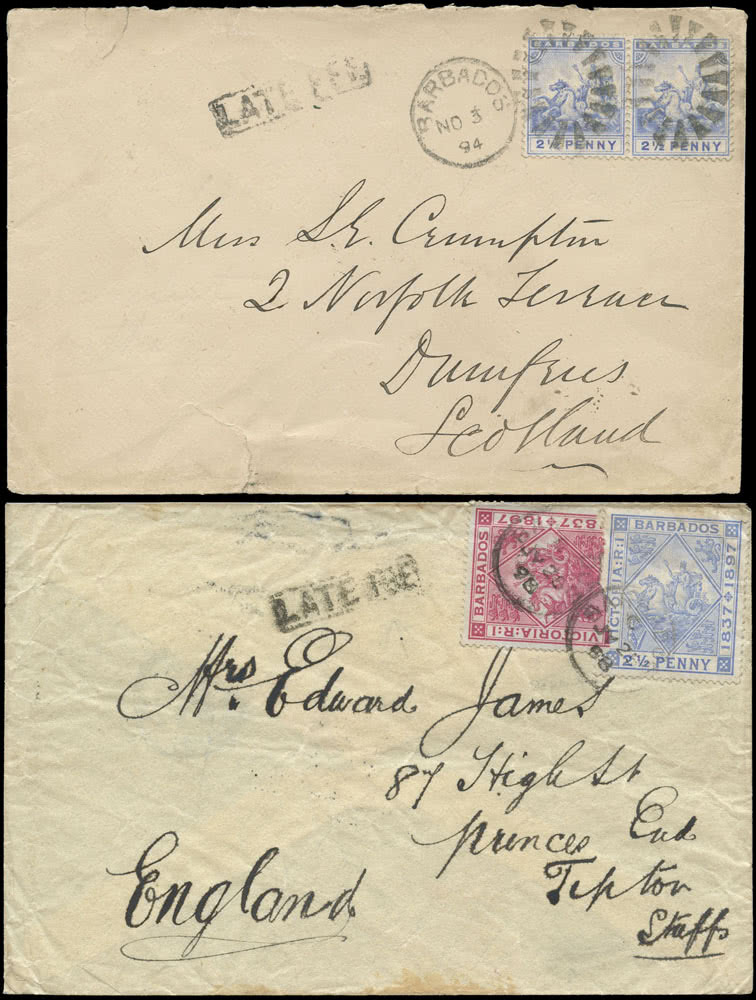 LATE FEE
BARBADOS
NO 3
94
BARBADOS
2½ PENNY
BARBADOS
2½ PENNY
Miss S.E. Crumpton
2 Norfolk Terrace
Dumfries
Scotland
LATE FEE
1837 1897
BARBADOS
VICTORIA:R:I
98
BARBADOS
VICTORIA:R:I
1837 1897
2½ PENNY
98
Mrs. Edward James
87 High St
Princes End
Tipton
Staffs
England